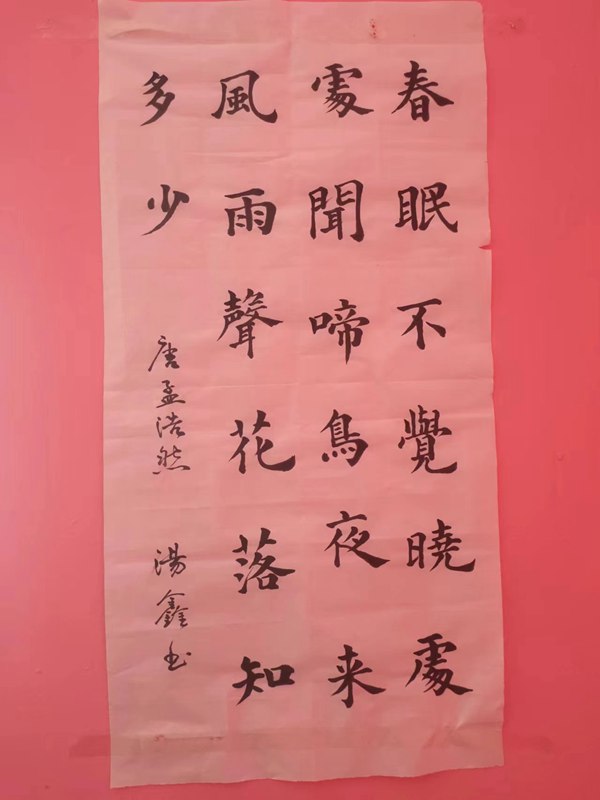 春眠不覺曉處
處聞啼鳥夜来
風雨聲花落知
多少
唐孟浩然
湯鑫书